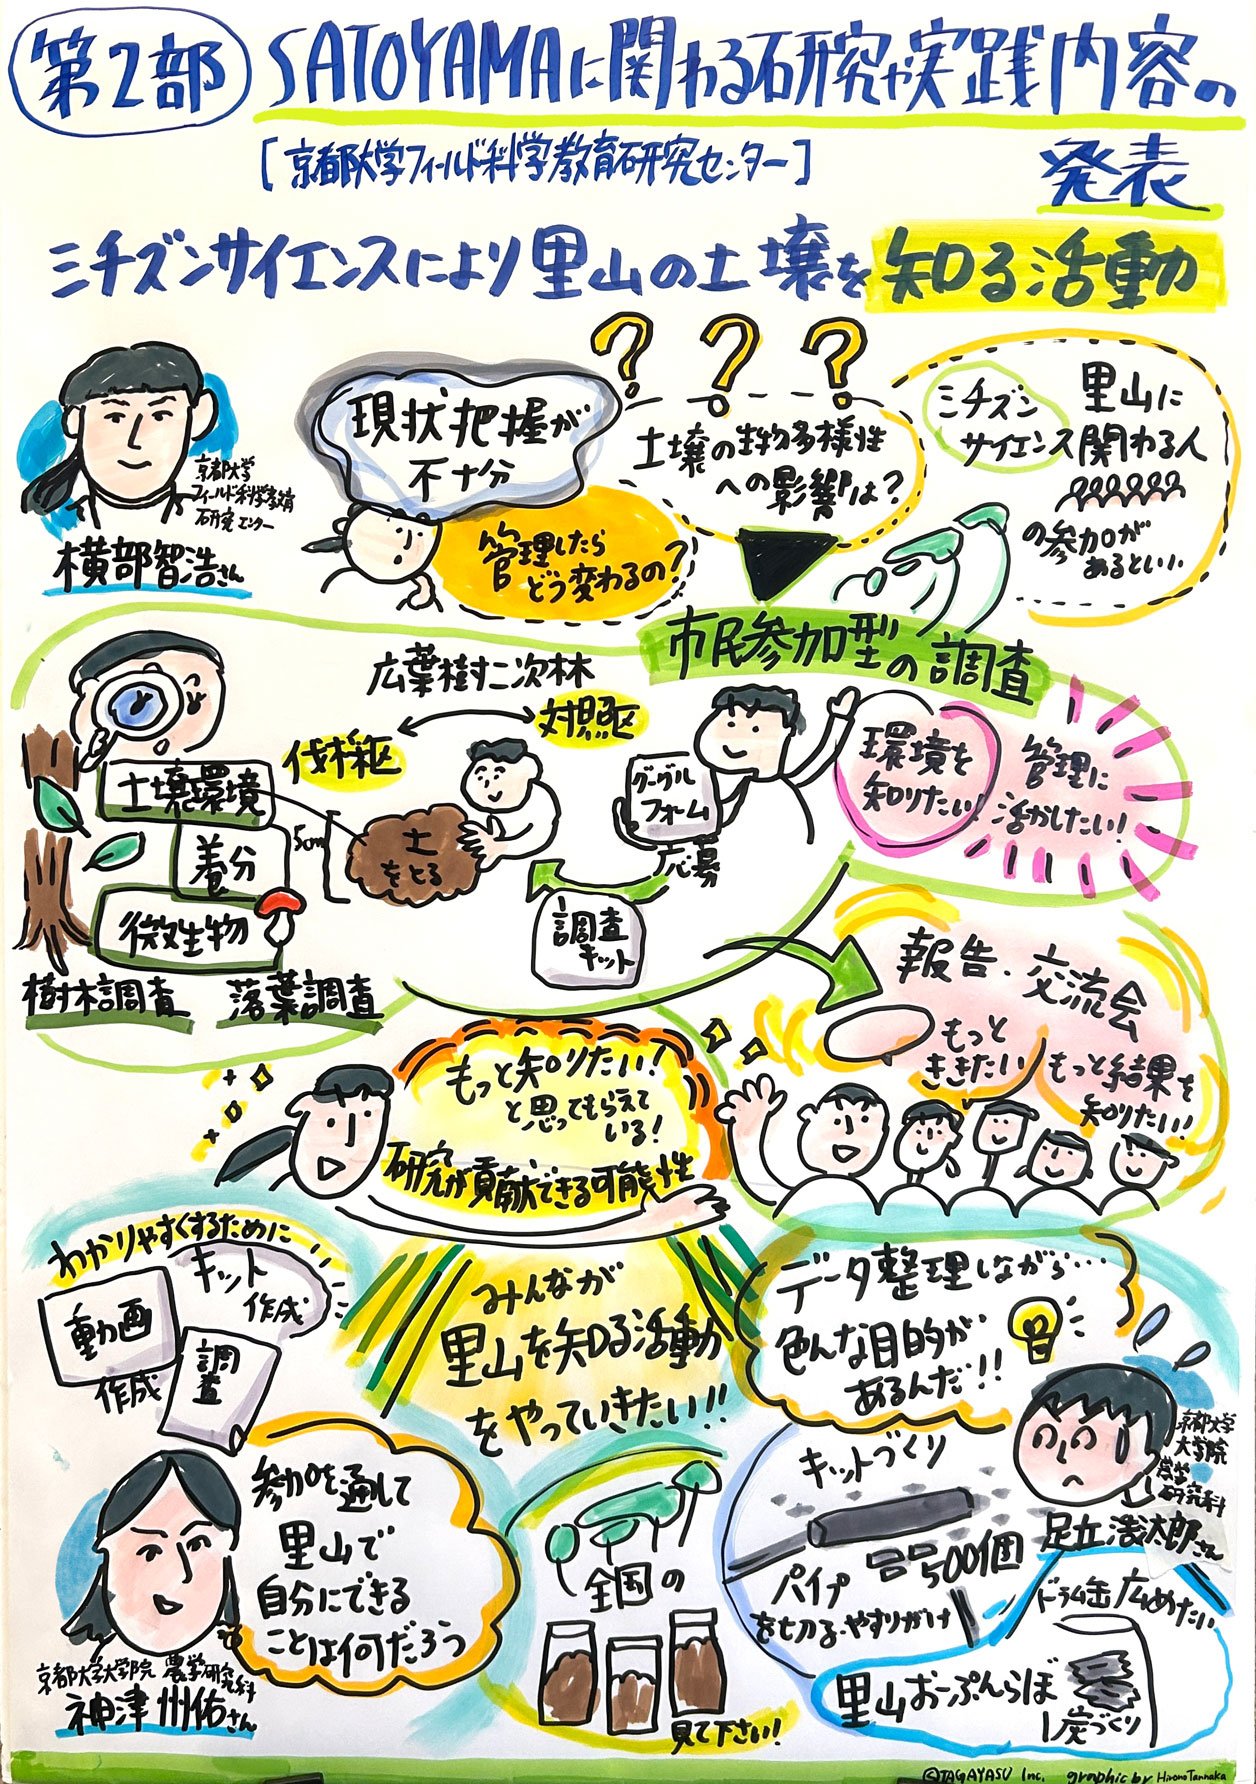 第2部
SATOYAMAに関わる研究や実践内容の
発表
[京都大学フィールド科学教育研究センター]
ミチズンサイエンスにより里山の土壌を知る活動
京都大学
フィールド科学教育
研究センター
横部智浩さん
現状把握が
不十分
管理したら
どう変わるの?
? ? ?
土壌の生物多様性
への影響は?
ミチズン
サイエンス
里山に
関わる人
の参加が
あるといい..
市民参加型の調査
広葉樹二次林
伐採区
対照区
土壌環境
養分
微生物
樹木調査
落葉調査
5cm
土
をとる
グーグル
フォーム
応募
調査
キット
環境を
知りたい!
管理に
活かしたい!
報告・交流会
もっと
ききたい
もっと結果を
知りたい!
もっと知りたい!
と思ってもらえて
いる!
研究が貢献できる可能性
わかりやすくするために
キット
作成
動画
作成
調査
みんなが
里山を知る活動
をやっていきたい!!
データ整理しながら…
色んな目的が
あるんだ!!
京都大学
大学院
農学
研究科
足立浩太郎さん
キットづくり
500個
パイプ
を切る・やすりがけ
ドラム缶広めたい
里山おーぷんらぼ
炭づくり
参加を通して
里山で
自分にできる
ことは何だろう
京都大学大学院 農学研究科
神津州佑さん
全国の
見て下さい!
©TAGAYASU Inc. graphic by Hirono Tannaka